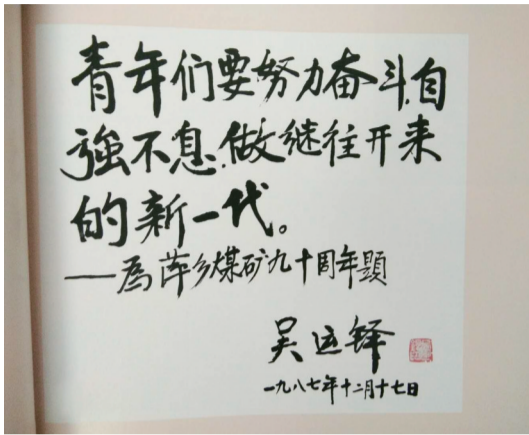 青年们要努力奋斗,自
強不息.做继往开来
的新一代。
——為萍乡煤矿九十周年題
吴运铎
一九八七年十二月十七日